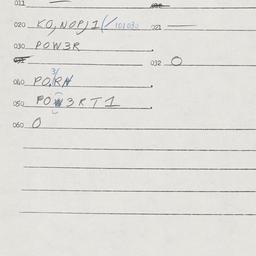 011
020 KO, NOP, 1 021
030 POW3R
032 O
040 PO, RN
050 POW3RT1
060 O